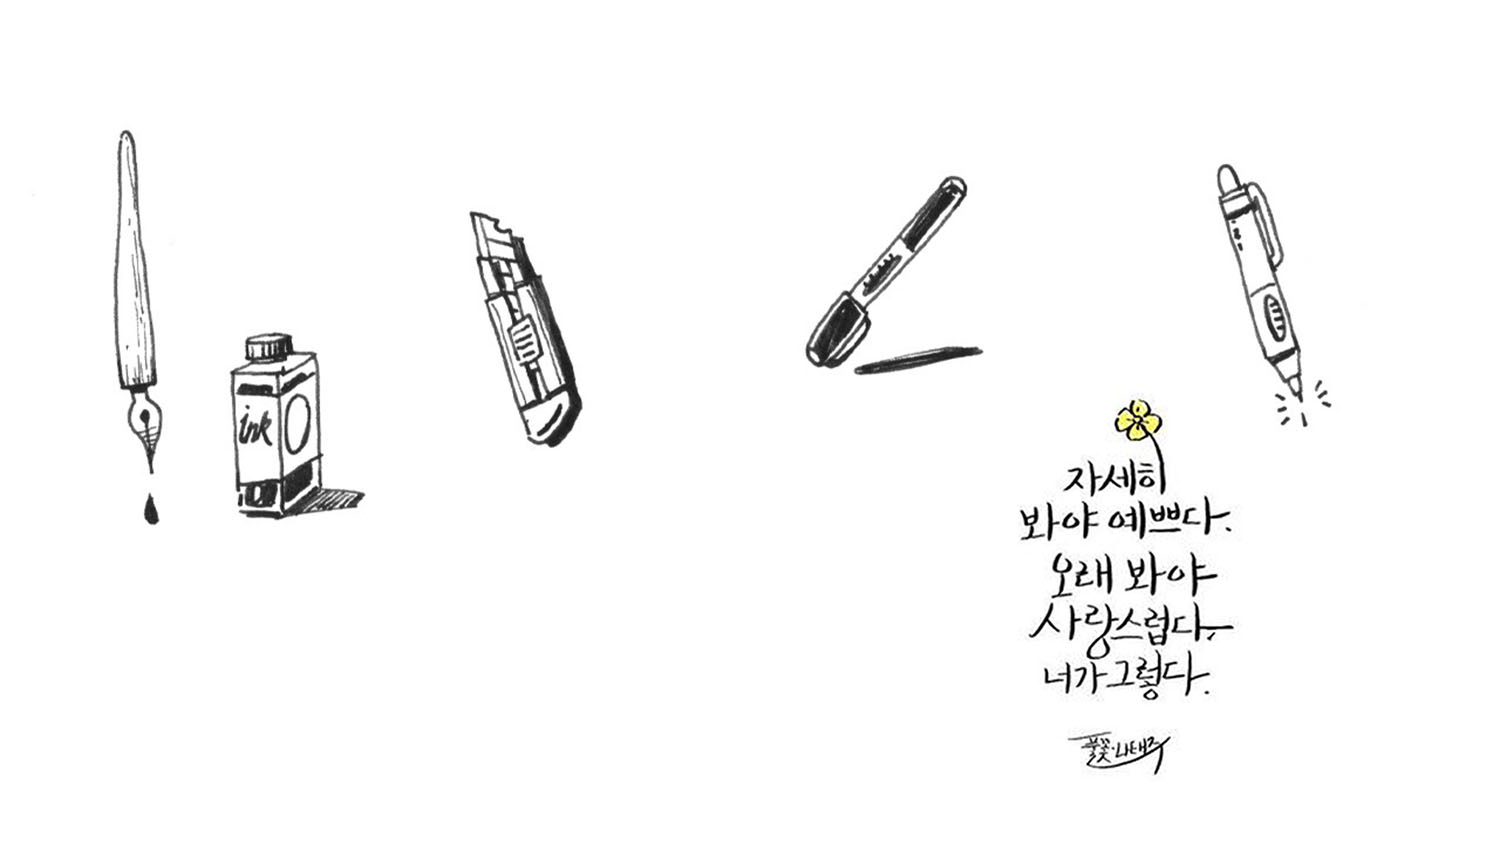 ink
자세히
봐야 예쁘다.
오래 봐야
사랑스럽다.
너가 그렇다.
풀꽃·나태주